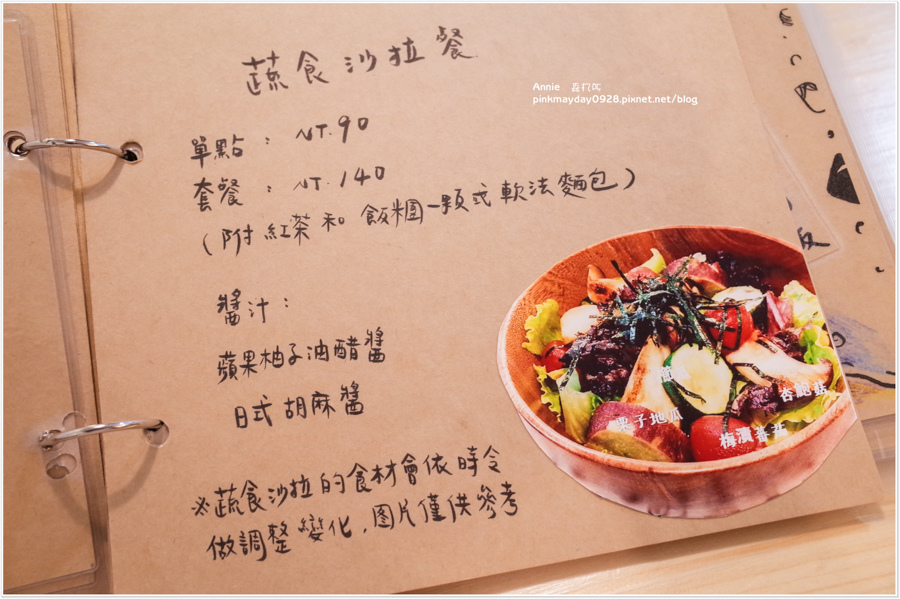 蔬食沙拉餐
Annie
pinkmayday0928.pixnet.net/blog
單點：NT.90
套餐：NT.140
（附紅茶和飯糰一顆或軟法麵包）
醬汁：
蘋果柚子油醋醬
日式胡麻醬
栗子地瓜
杏鮑菇
梅漬番茄
※蔬食沙拉的食材會依時令
做調整變化，图片僅供參考
吧，